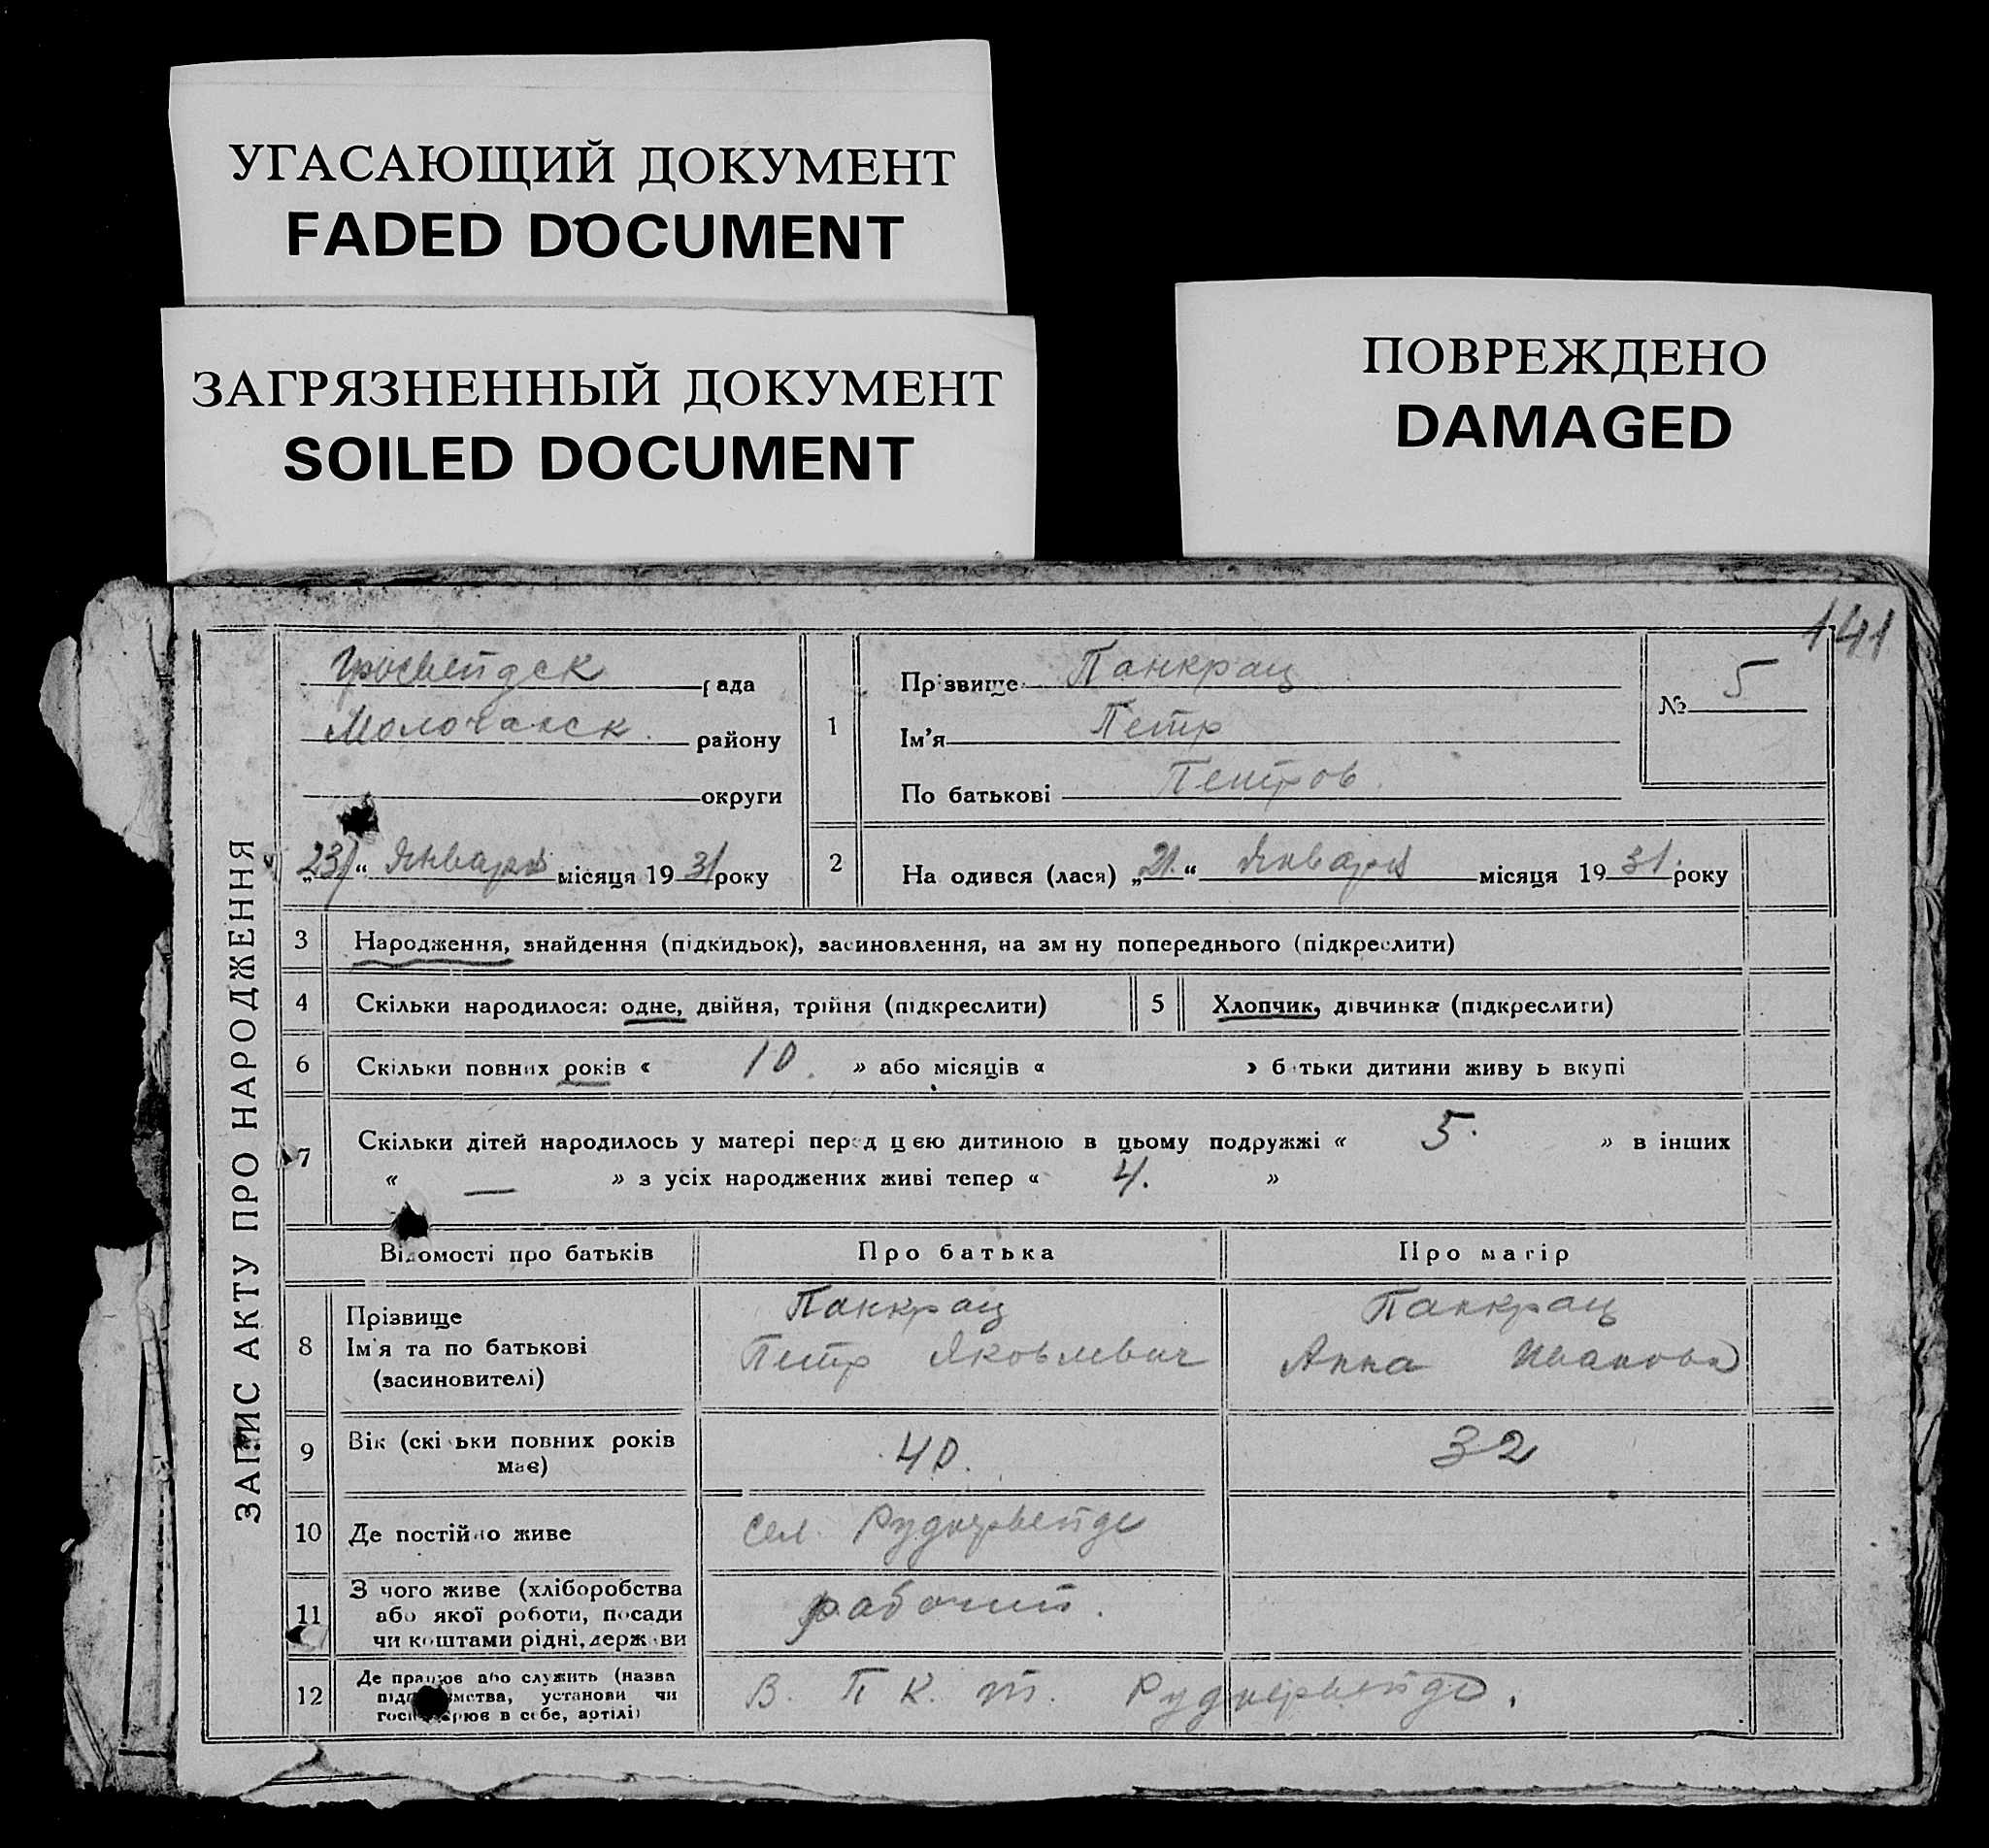 УГАСАЮЩИЙ ДОКУМЕНТ
FADED DOCUMENT
ЗАГРЯЗНЕННЫЙ ДОКУМЕНТ
SOILED DOCUMENT
ПОВРЕЖДЕНО
DAMAGED
141
ЗАПИС АКТУ ПРО НАРОДЖЕННЯ
рада
Молочанск. району
округи
„23“ Января місяця 1931 року
1
Прізвище Панкрац
Ім'я Петр
По батькові Петров.
№ 5
2
На одився (лася) „21.“ Января місяця 1931. року
3 Народження, знайдення (підкидьок), засиновлення, на зм ну попереднього (підкреслити)
4 Скільки народилося: одне, двійня, трійня (підкреслити)
5 Хлопчик, дівчинка (підкреслити)
6 Скільки повних років « 10. » або місяців « » б тьки дитини живу ь вкупі
7 Скільки дітей народилось у матері перед цією дитиною в цьому подружжі « 5. » в інших
« — » з усіх народжених живі тепер « 4. »
Відомості про батьків Про батька Про матір
8 Прізвище
Ім'я та по батькові
(засиновителі)
Панкрац
Петр Яковлевич
Панкрац
Анна Иванова
9 Вік (скі ьки повних років
має)
40.
32
10 Де постійно живе
сел. Руднервейде
11 З чого живе (хліборобства
або якої роботи, посади
чи коштами рідні, держ ви
рабочий.
12 Де працює або служить (назва
підп ємства, установи чи
госп арює в себе, артілі)
В. П К. т. Руднервейде.